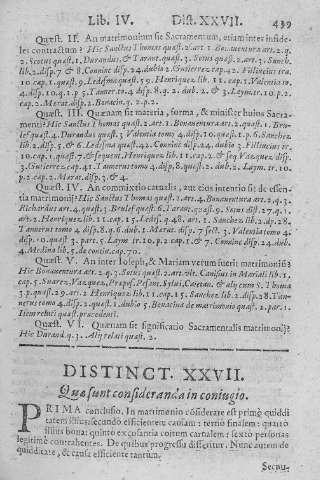 Lib. IV. Dist. XXVII. 439
Quæst. II. An matrimonium sit Sacramentum, etiam inter infide-
les contractum? Hic Sanctus Thomas quæst. 2. art. 1. Bonauentura art. 2. q.
2. Scotus quæst. 1. Durandus, & Tarant. quæst. 3. Sotus quæst. 2. art. 3. Sanch.
lib. 2. disp. 7 & 8. Coninc disp. 24. dubio 2. Gutierrez cap. 42. Fillincius tra.
10. cap. 1. quæst. 9. & sq. Ledesma quæst. 59. Henriquez lib. 11. cap. 1. Valentia to.
4. disp. 10. q. 1. p. 5. Tanner to. 4. disp. 8. q. 2. dub. 2. & 3. Laym. tr. 10. p. 2.
cap. 2. Morat. disp. 2. Bonacin. q. 2. p. 2.
Quæst. III. Quænam sit materia, forma, & minister huius Sacra-
menti? Hic Sanctus Thomas quæst. 2. art. 1. Bonauentura art. 2. q. 1. Bru-
lef quæst. 4. Durandus quæst. 3 Valentia tomo 4. disp. 10. quæst. 1. p. 6. Sanchez
lib. 2. disp. 5. & 6. Ledesma quæst. 42. Coninc disp. 24. dubio 3. Fillincius tr.
10. cap. 1. quæst. 7. & sequent. Henriquez lib. 11. cap. 2. & seq. Vazquez disp.
3. Gutierrez cap. 41. Tannerus tomo 4. disp. 8. quæst. 2. dub. 2. Laym. tr. 10.
p. 2. cap. 2. Morat. disp. 3. & 4.
Quæst. IV. An commixtio carnalis, aut eius intentio sit de essen-
tia matrimonij? Hic Sanctus Thomas quæst. 1. art. 4. Bonauentura art. 2. q. 3.
Richardus art. 4. quæst. 3. Brulef quæst. 6. Taran. quæst. 9. Scotus dist. 27. q. 1.
art. 2. Henriquez lib. 11. cap. 15. Ledes. q. 48. art. 1. Sanchez lib. 2. dp. 28.
Tannerus tomo 4 disp. 8. q. 6. dub. 2. Morat. disp. 7 sect. 3. Valentia tomo 4.
disp. 10. quæst. 3. part. 5. Laym. tr. 10. p. 2 cap. 1. & 7. Coninc disp. 24. dub.
4. Medina lib. 5. de contin. cap. 70.
Quæst. V. An inter Ioseph, & Mariam verum fuerit matrimonium?
Hic Bonauentura art. 2. q. 2. Sotus quæst. 2. art. vlt. Canisius in Mariali lib. 1.
cap. 5. Suarez, Vazquez, Pesant. Sylui, Caietan. & alij cum S. Thoma
3. p. quæst. 29. art. 2 Henriquez lib. 11. cap. 15. Sanchez lib. 2. disp. 28. Tan-
nerus tomo 4. disp. 2. quæst. 1. dubio 5. Bonacina de matrimonio quæst. 2. par. 1.
Item rebuti quæst. præcedenti.
Quæst. VI. Quænam sit significatio Sacramentalis matrimonij?
Hic Durand. q. 3. Alij relati quæst. 2.
DISTINCT. XXVII.
Quæ sunt consideranda in coniugio.
PRIMA conclusio. In matrimonio cōsiderare est primè quiddi
tatem illius: secundò efficientem causam: tertiò finalem: quartò
bona: quintò excusantia coitum carnalem: sextò personas
legitimè contrahentes. De quibus progressu disseritur. Nunc autem de
quidditate, & causa efficiente tantùm.
Sequu-